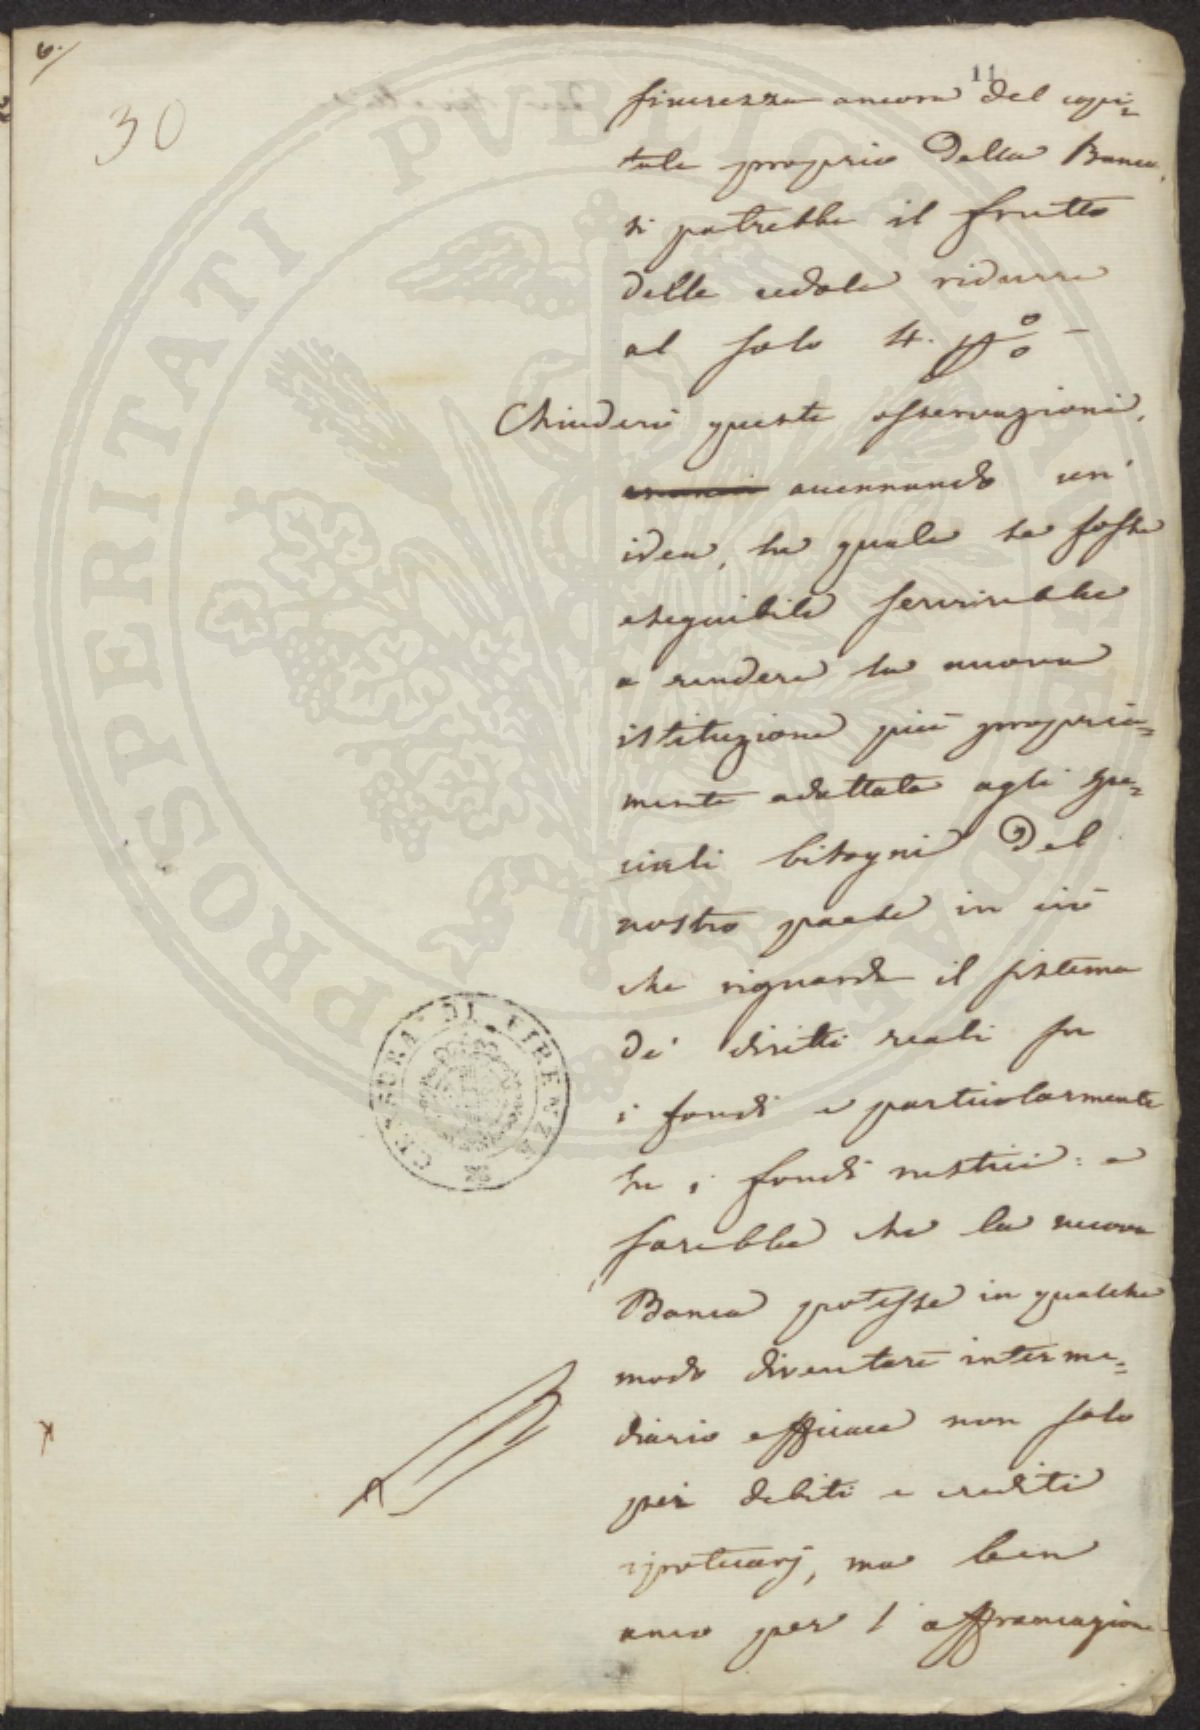 6.
11
30
sicurezza ancora del capi=
tale proprio della Banca,
si potrebbe il frutto
delle cedole ridurre
al solo 4. p % –
Chiuderò queste osservazioni,
accennando un'
idea, la quale se fosse
eseguibile servirebbe
a rendere la nuova
istituzione più propria=
mente adattata agli spe=
ciali bisogni del
nostro paese in ciò
che riguarda il sistema
de' diritti reali su
i fondi e particolarmente
su i fondi rustici: e
farebbe che la nuova
Banca potesse in qualche
modo diventare interme=
diario efficace non solo
per debiti e crediti
ipotecarj, ma ben
anco per l'affrancazione
CENSURA DI FIRENZE
PROSPERITATI PUBLICAE